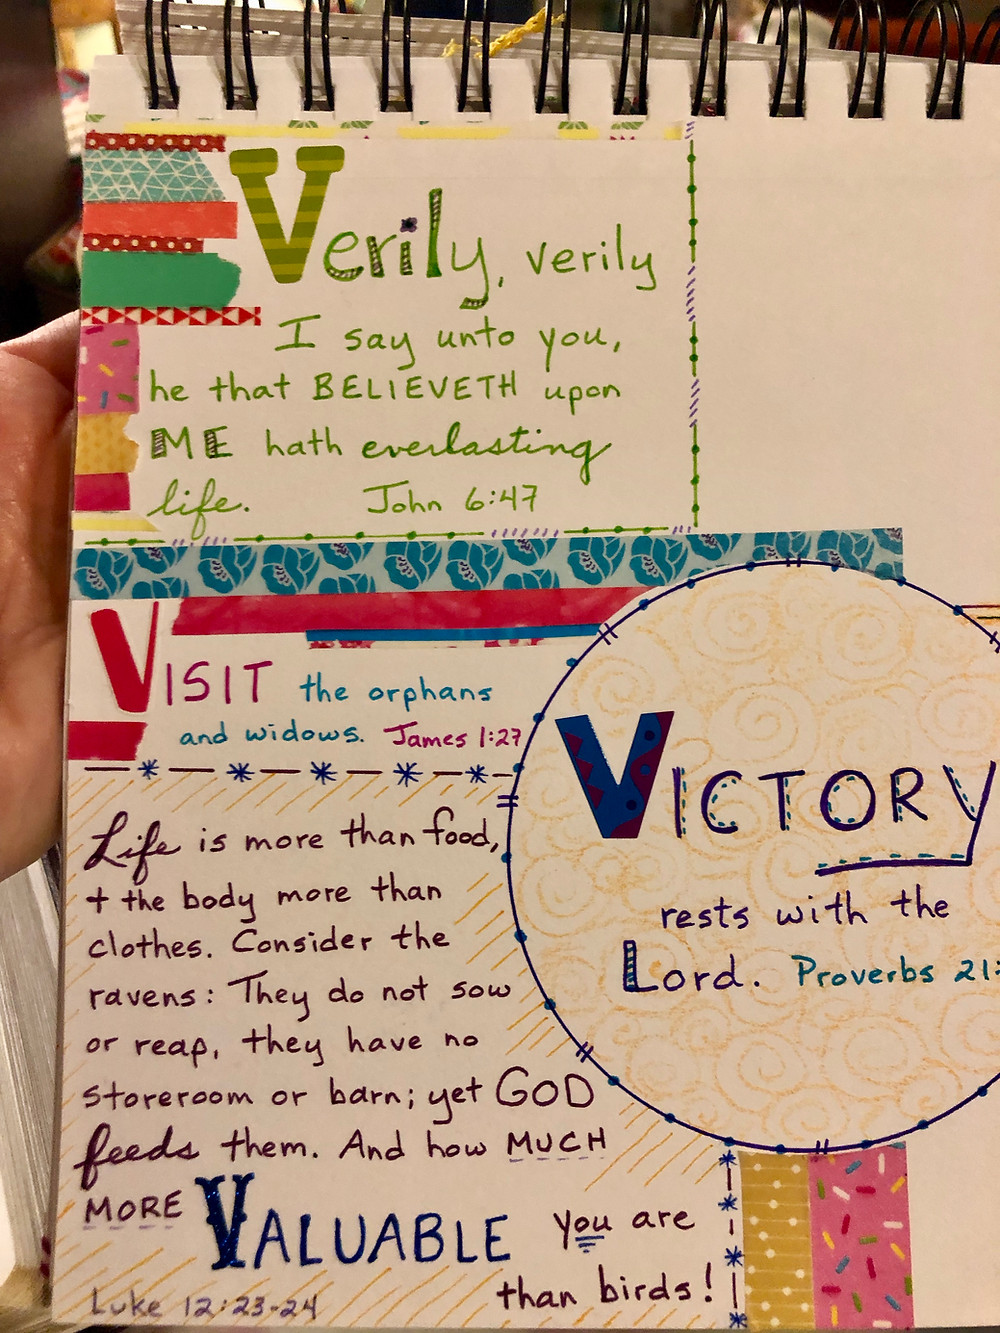 Verily, verily
I say unto you,
he that BELIEVETH upon
ME hath everlasting
life. John 6:47
VISIT the orphans
and widows. James 1:27
VICTORY
rests with the
Lord. Proverbs 21:
Life is more than food,
+ the body more than
clothes. Consider the
ravens: They do not sow
or reap, they have no
storeroom or barn; yet GOD
feeds them. And how MUCH
MORE VALUABLE you are
than birds!
Luke 12:23-24